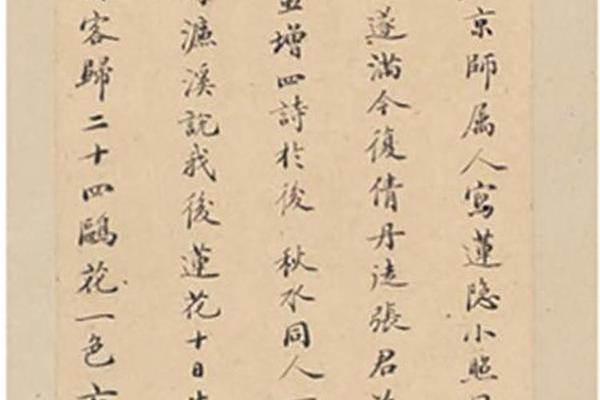 京師属人寫蓮隐小照
遂滿今復倩丹徒張君
增四詩於後 秋水同人
濂溪說我後蓮花十日
客歸二十四鷗花一色